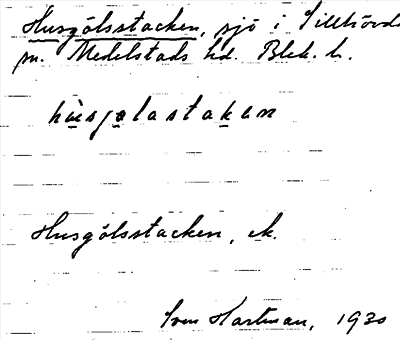 Husgölsstacken, sjö i Tillhövda
sn. Medelstads hd. Blek. l.
husgølastakan
Husgölsstacken, ek.
Sven Hartman, 1930